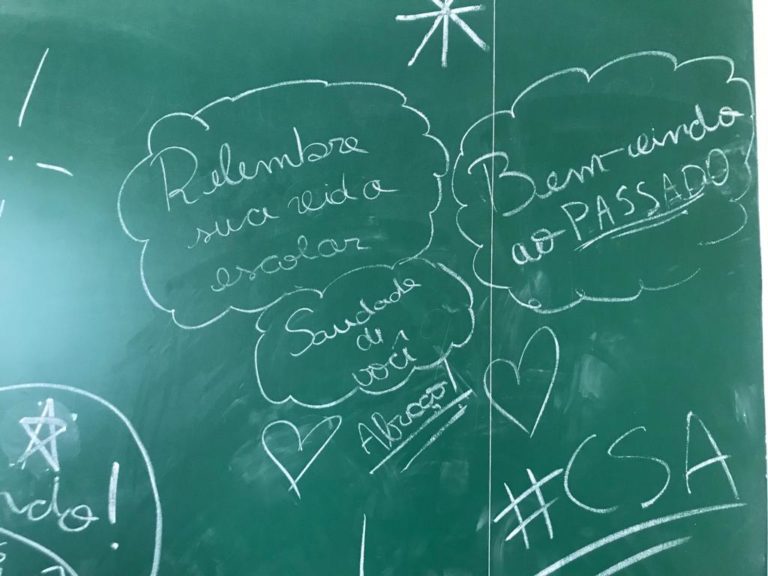 Relembre
sua vida
escolar
Bem-vindo
ao PASSADO
Saudade
de
você
Abraço!
#CSA
ndo!